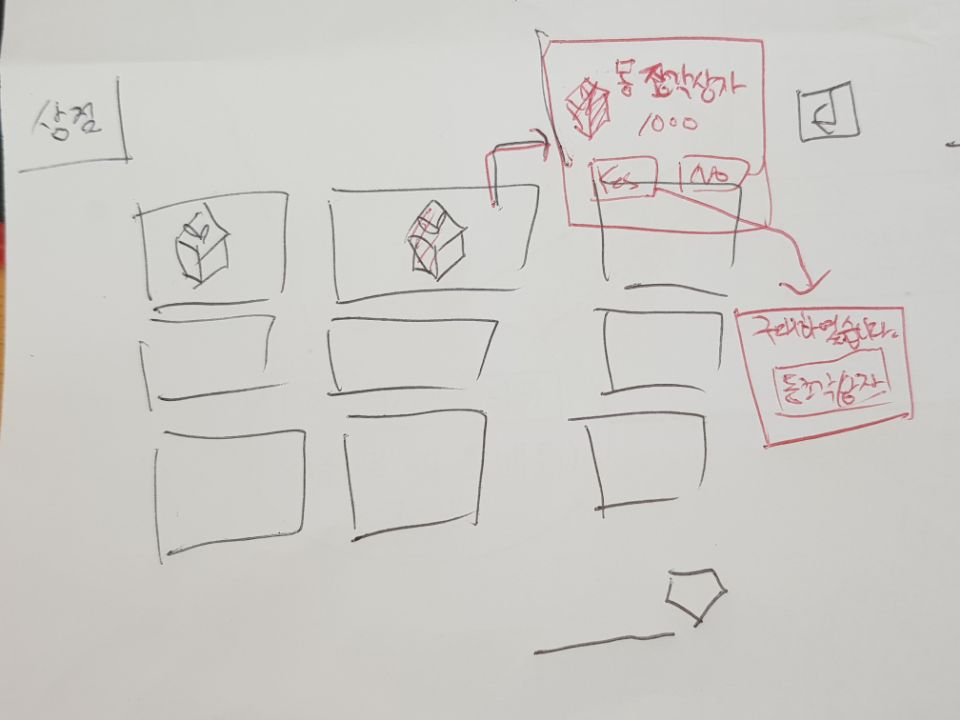 상점
몽 조각상자
1000
Yes
No
구매하였습니다.
몽조각상자